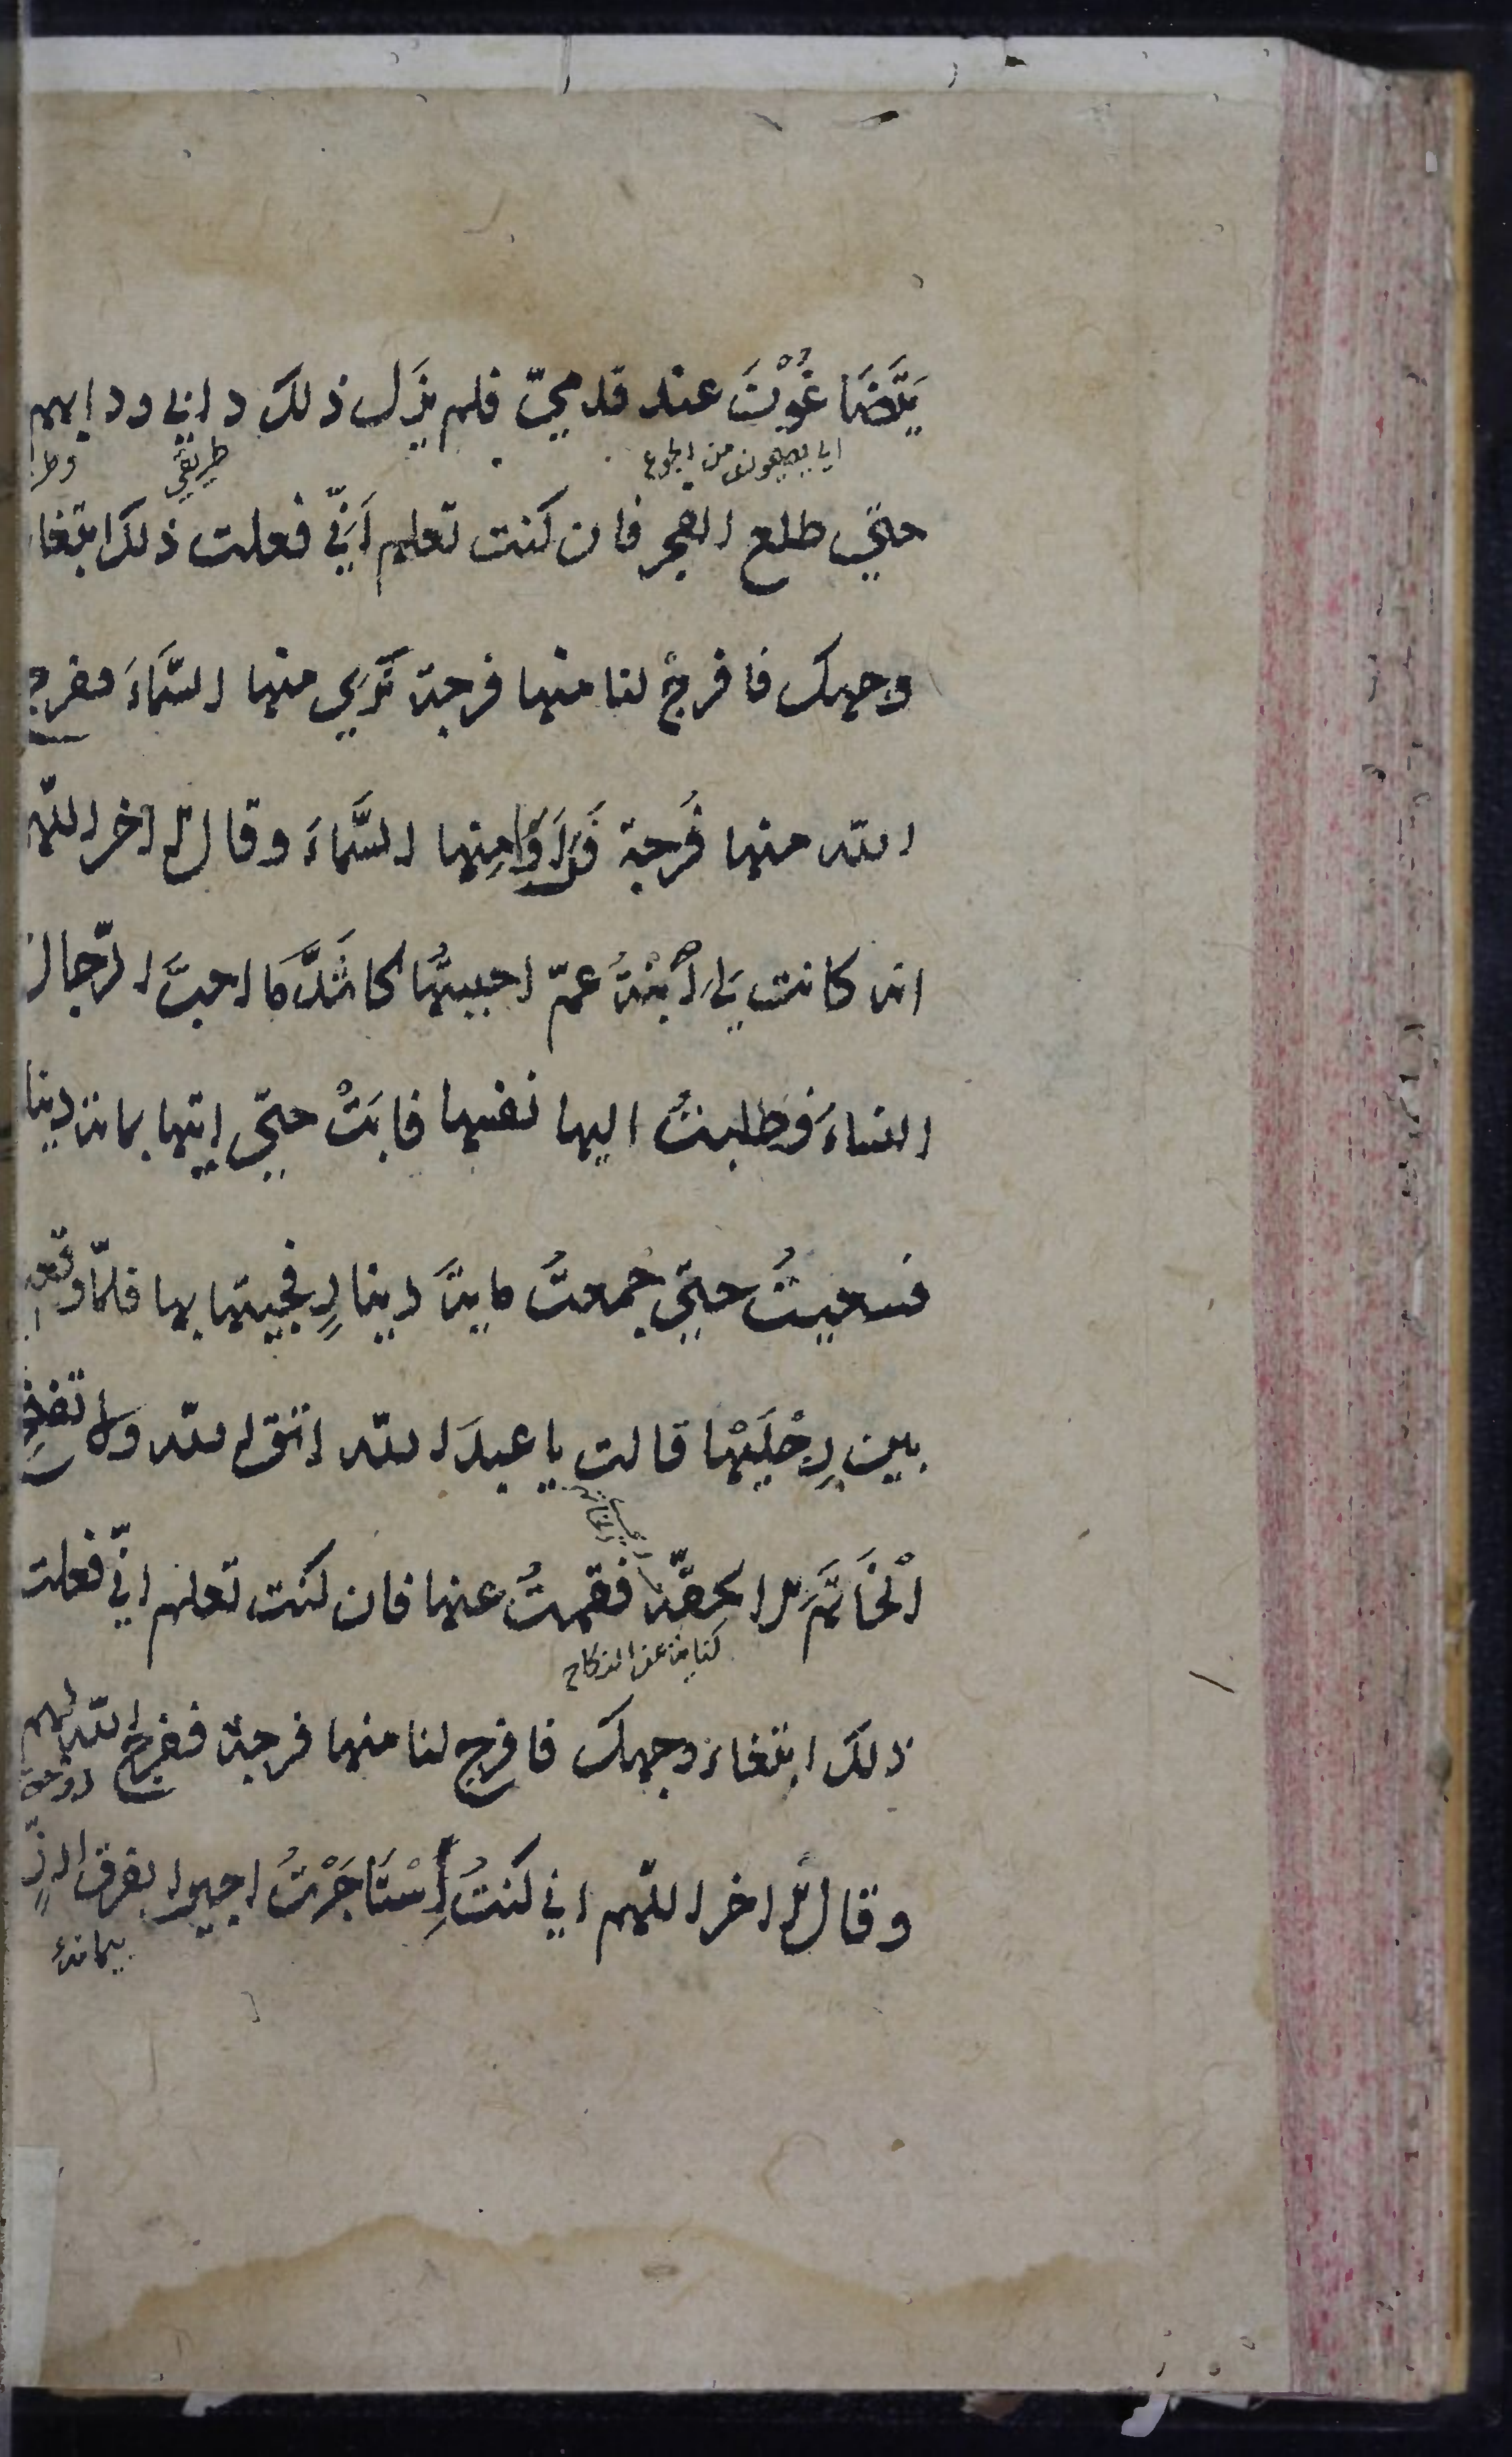 يَتَضَاغَوْنَ عند قدميّ فلم يَزَل ذلك دابي ودابهم
اي يصيحون من الجوع طريقي
حتي طلع الفجر فان كنت تعلم اَنّي فعلت ذلك ابتغا
وجهك فافرجْ لنا منها فرجة نَرَي منها السَّمَاءَ ففرج
الله منها فُرجة فَرَاَوْا مِنها السَّمَاءَ وقال الآخر اللهم
انه كانت لِي اِبْنَةُ عمّ احببتُها كاشَدِّ مَا احبَّ الرّجال
النساءَ وطلبتُ اليها نفسها فابَتْ حتّي اتيها بمائة دينا
فسعيتُ حتّي جمعتُ ماية دينارٍ فجيتها بها فلمّا وقعت
بين رِجْلَيْهَا قالت يا عبدَ الله اتق الله ولا تفض
الْخَاتَمَ الا بحقّه فقمتُ عنها فان كنت تعلم انّي فعلت
كناية عن النكاح
ذلك ابتغاء وجهك فافرج لنا منها فرجة ففرج الله لهم
وقال الآخر اللهم اني كنتُ اِسْتَاجَرْتُ اجيرا بفرق ارزّ
پيمانهٔ